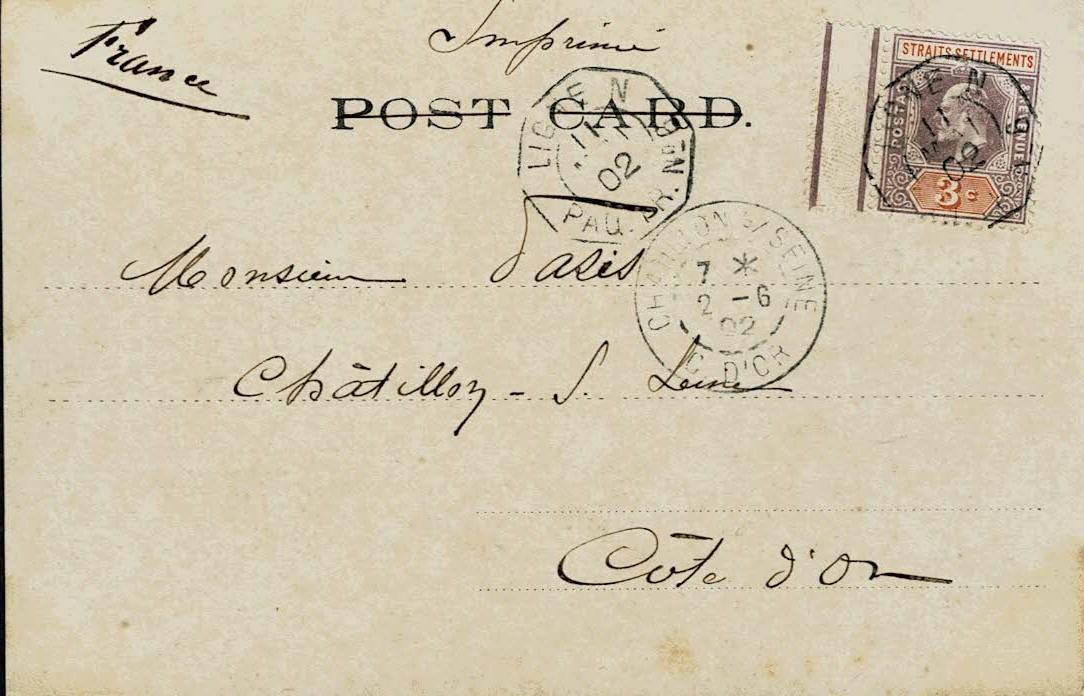 France
Imprimé
POST CARD.
STRAITS SETTLEMENTS
POSTAGE
REVENUE
3 c
LIGNE N
11
MAI
02
LIGNE N
PAQ. FR.
02
CHATILLON S/ SEINE
7 *
2 - 6
02
C. D'OR
Monsieur
Châtillon - S. Seine
Côte d'Or